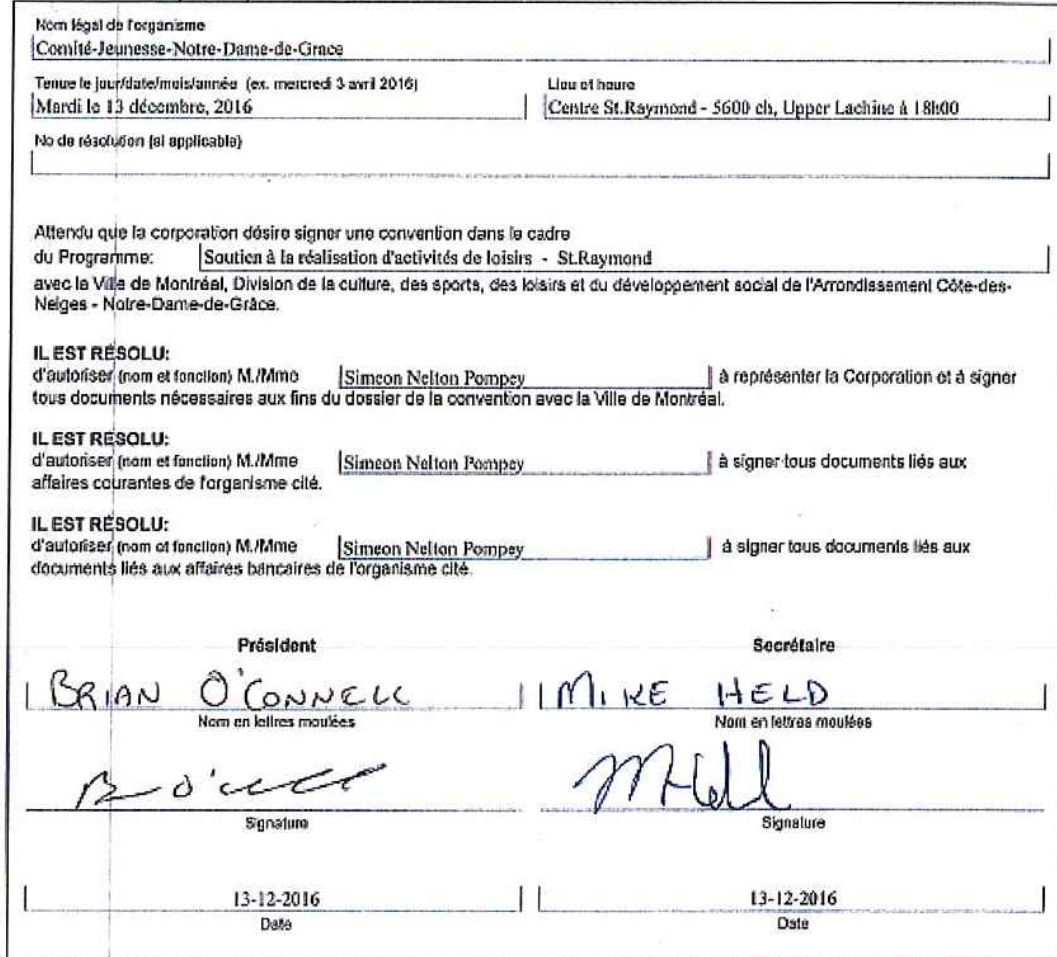 Nom légal de l'organisme
Comité-Jeunesse-Notre-Dame-de-Grace
Tenue le jour/date/mois/année (ex. mercredi 3 avril 2016)
Lieu et heure
Mardi le 13 décembre, 2016
Centre St.Raymond - 5600 ch, Upper Lachine à 18h00
No de résolution (si applicable)
Attendu que la corporation désire signer une convention dans le cadre
du Programme: Soutien à la réalisation d'activités de loisirs - St.Raymond
avec la Ville de Montréal, Division de la culture, des sports, des loisirs et du développement social de l'Arrondissement Côte-des-
Neiges - Notre-Dame-de-Grâce.
IL EST RÉSOLU:
d'autoriser (nom et fonction) M./Mme Simeon Nelton Pompey à représenter la Corporation et à signer
tous documents nécessaires aux fins du dossier de la convention avec la Ville de Montréal.
IL EST RÉSOLU:
d'autoriser (nom et fonction) M./Mme Simeon Nelton Pompey à signer tous documents liés aux
affaires courantes de l'organisme cité.
IL EST RÉSOLU:
d'autoriser (nom et fonction) M./Mme Simeon Nelton Pompey à signer tous documents liés aux
documents liés aux affaires bancaires de l'organisme cité.
Président
Secrétaire
BRIAN O'CONNELL
MIKE HELD
Nom en lettres moulées
Nom en lettres moulées
Signature
Signature
13-12-2016
13-12-2016
Date
Date